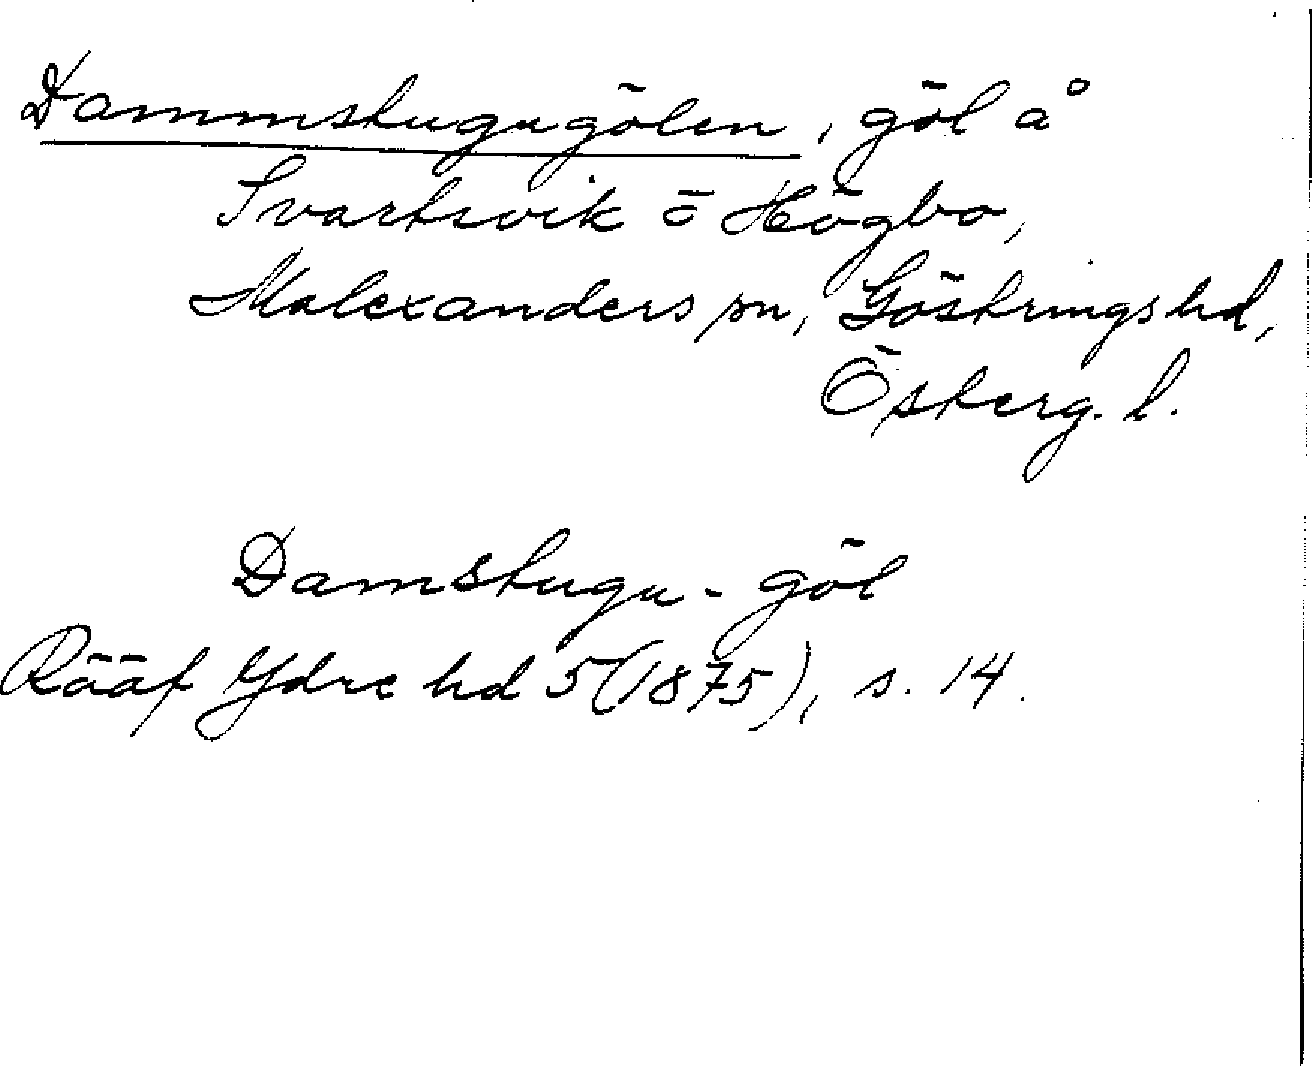 Dammstugugölen, göl å
Svartsvik ö Högbo,
Malexanders sn, Göstrings hd,
Österg. l.
Damstugu-göl
Rääf Ydre hd 5 (1875), s. 14.